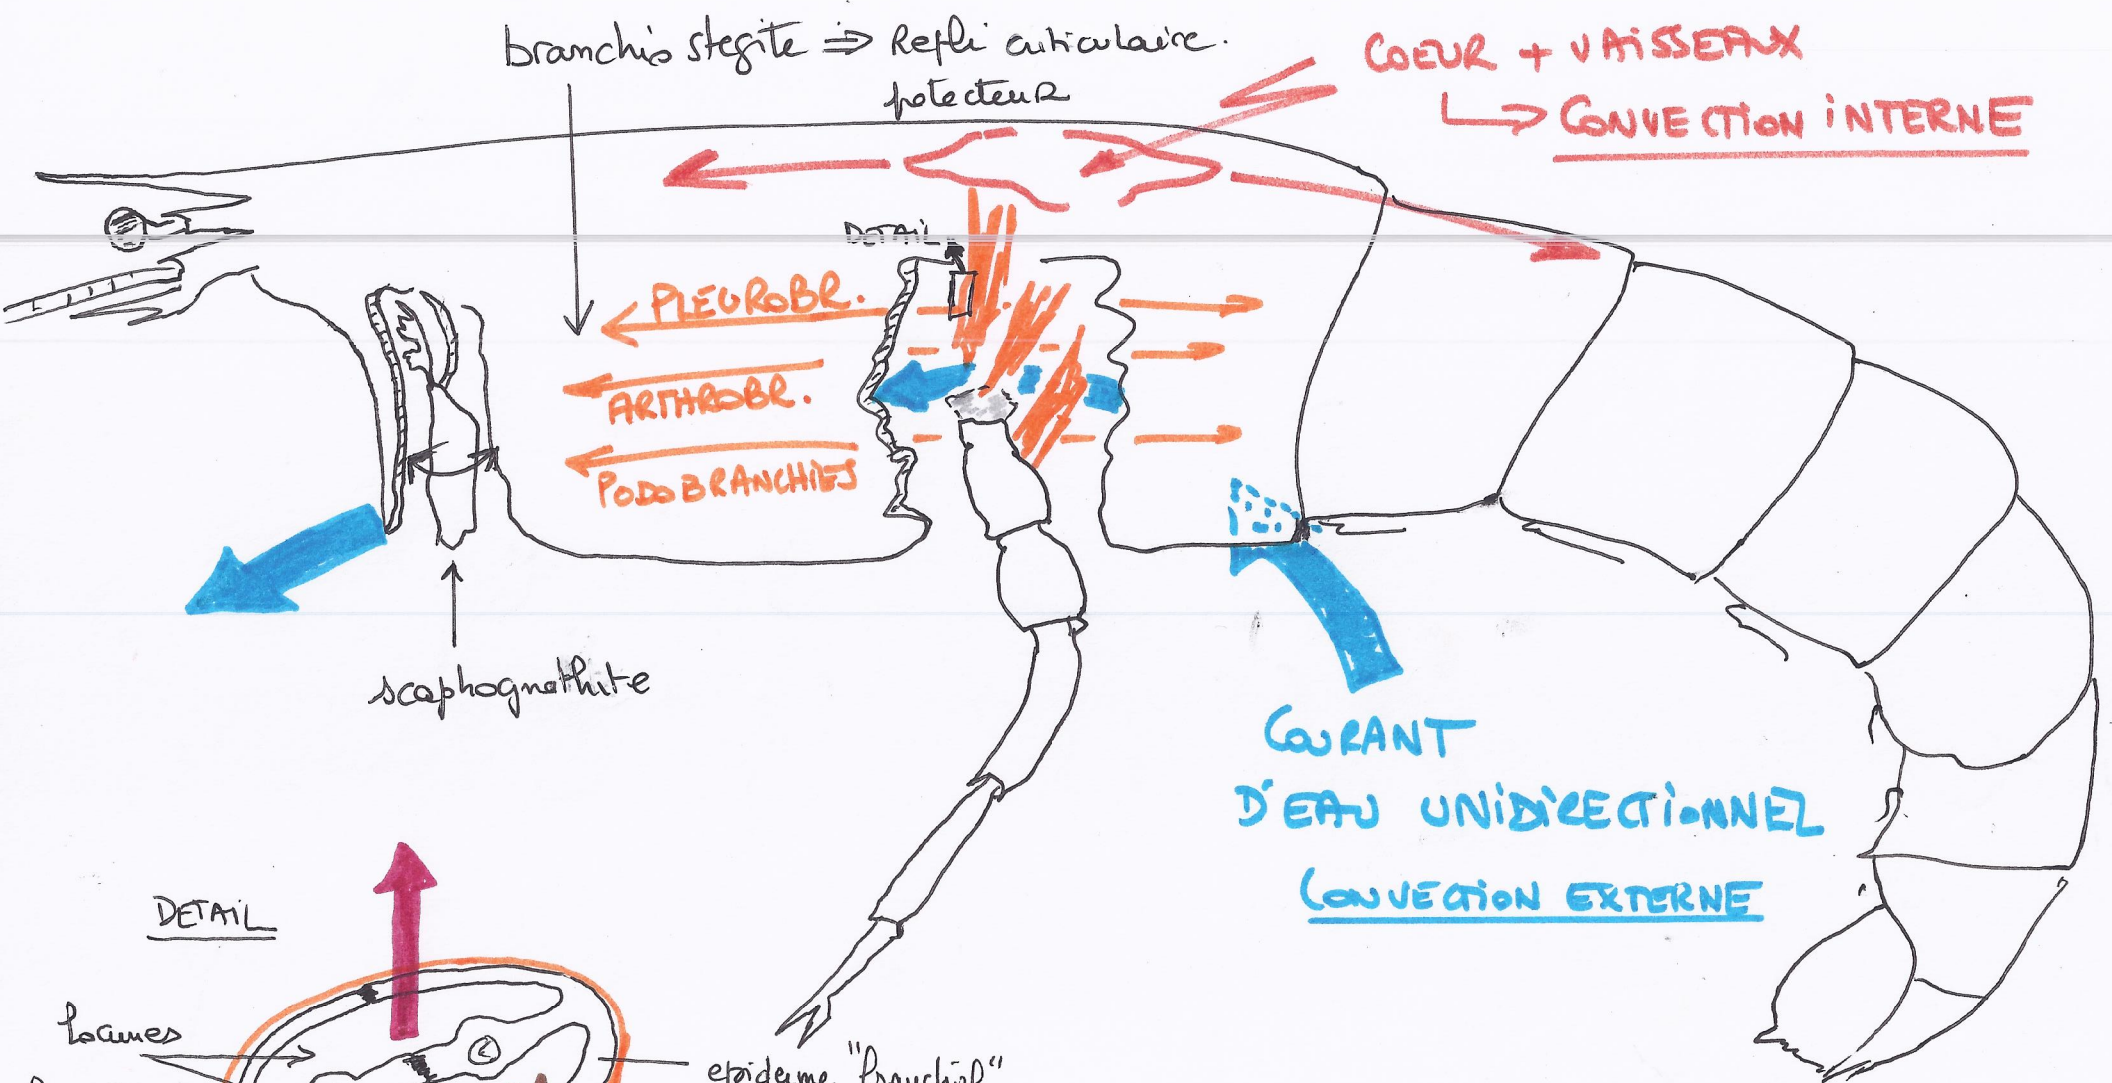 branchiostégite ⇒ Repli cuticulaire.
potecteur
COEUR + VAISSEAUX
↳ CONVECTION INTERNE
DETAIL
PLEUROBR.
ARTHROBR.
PODOBRANCHIES
scaphognathite
COURANT
D'EAU UNIDIRECTIONNEL
CONVECTION EXTERNE
DETAIL
lacunes
epiderme "branchial"